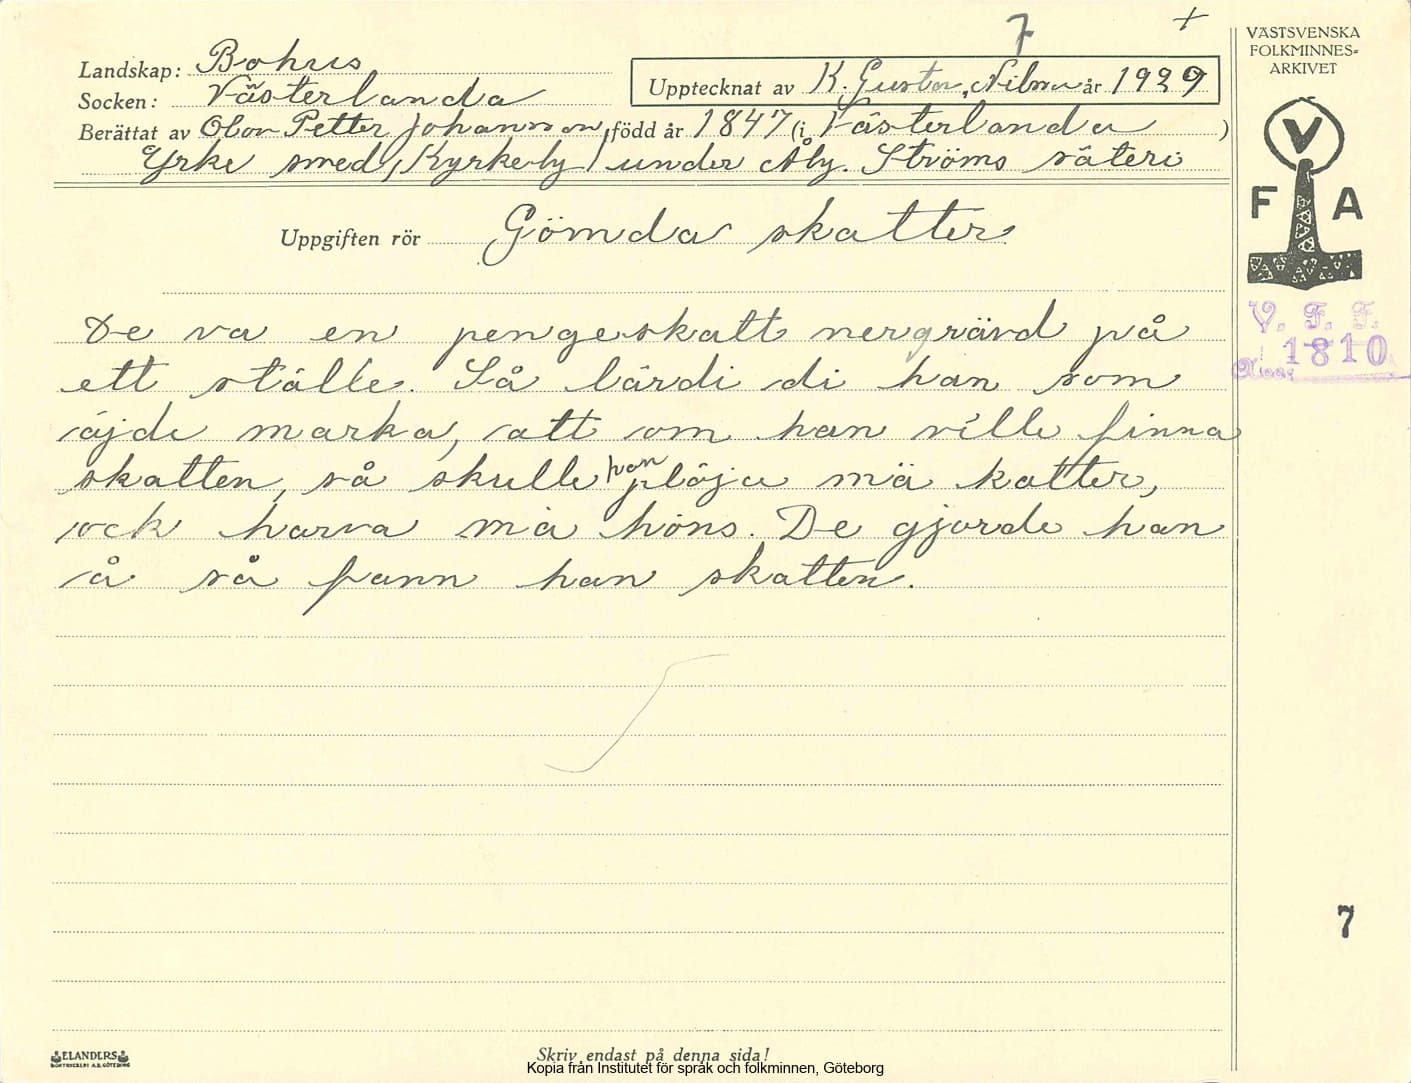 7 +
Landskap: Bohus
Socken: Västerlanda
Upptecknat av K. Gustav Nilson år 1929
Berättat av Olov Petter Johansson, född år 1847 (i Västerlanda )
Yrke smed, Kyrkeby under Åby. Ströms säteri
Uppgiften rör Gömda skatter
De va en pengeskatt nergrävd på
ett ställe. Så lärdi di han som
äjde marka, att om han ville finna
skatten, så skulle han plöja mä katter,
ock harva mä höns. De gjorde han
å så fann han skatten.
VÄSTSVENSKA
FOLKMINNES-
ARKIVET
V
F A
V. F. F.
1810
7
ELANDERS
BOKTRYCKERI A.B. GÖTEBORG
Skriv endast på denna sida!
Kopia från Institutet för språk och folkminnen, Göteborg